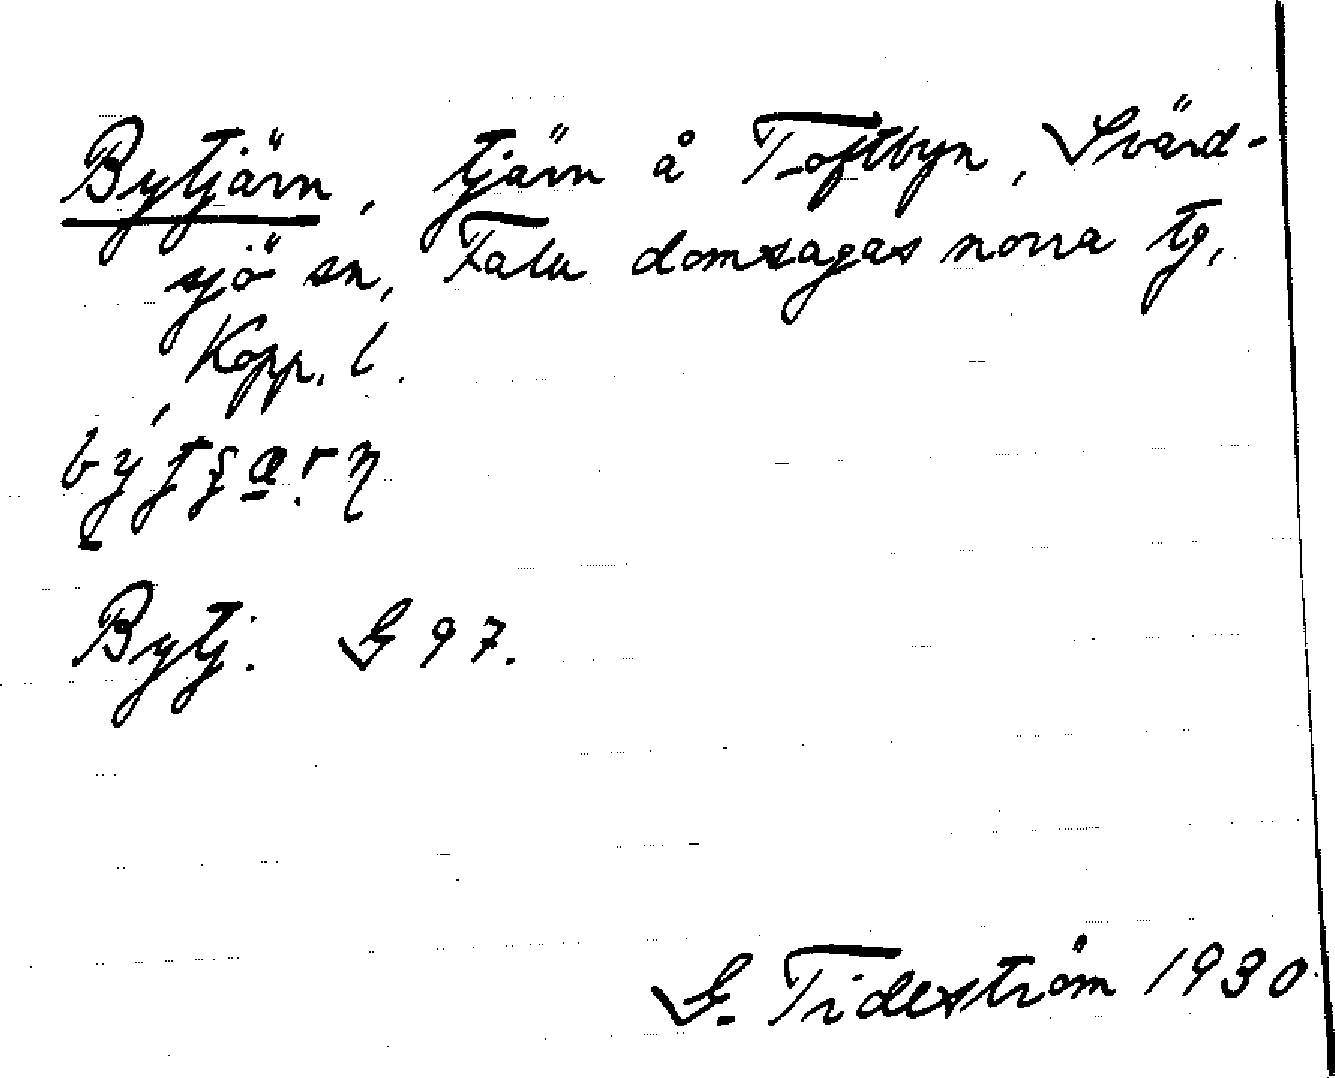 Bytjärn, tjärn å Toftbyn, Svärd-
sjö sn, Falu domsagas norra tg,
Kopp. l.
Bytj. G 97.
G. Tideström 1930